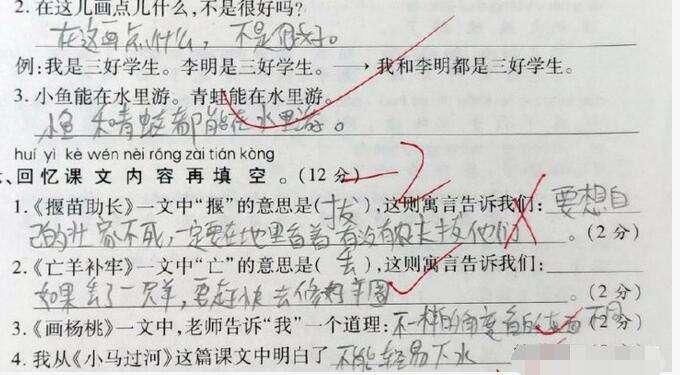 2. 在这儿画点儿什么,不是很好吗?
在这画点什么,不是很好。
例:我是三好学生。李明是三好学生。→我和李明都是三好学生。
3. 小鱼能在水里游。青蛙能在水里游。
小鱼和青蛙都能在水里游。
huí yì kè wén nèi róng zài tián kòng
、回忆课文内容再填空。(12分) -2
1.《揠苗助长》一文中“揠”的意思是(拔),这则寓言告诉我们:要想自
己的庄家不死,一定要在地里看着有没有农夫拔他们。(2分)
2.《亡羊补牢》一文中“亡”的意思是(丢),这则寓言告诉我们:
如果丢了一只羊,要赶快去修好羊圈(2分)
3.《画杨桃》一文中,老师告诉“我”一个道理:不一样的角度看的 不同(2分)
4. 我从《小马过河》这篇课文中明白了不能轻易下水